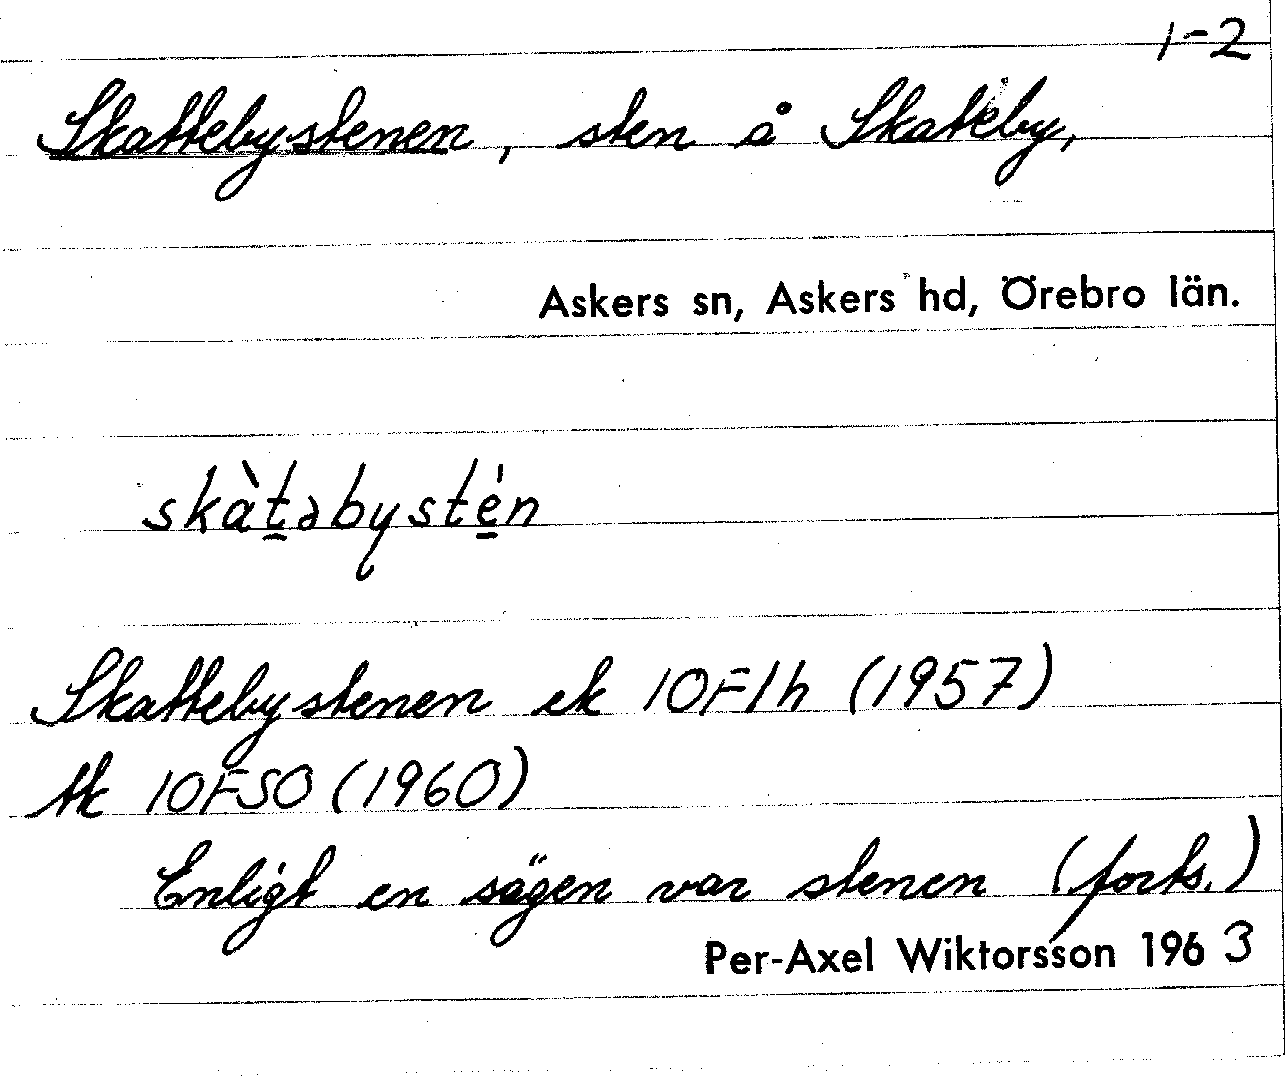 1-2
Skattebystenen, sten å Skatteby,
Askers sn, Askers hd, Örebro län.
skàt̠əbysté̠n
Skattebystenen ek 10F1h (1957)
tk 10FSO (1960)
Enligt en sägen var stenen (forts.)
Per-Axel Wiktorsson 1963